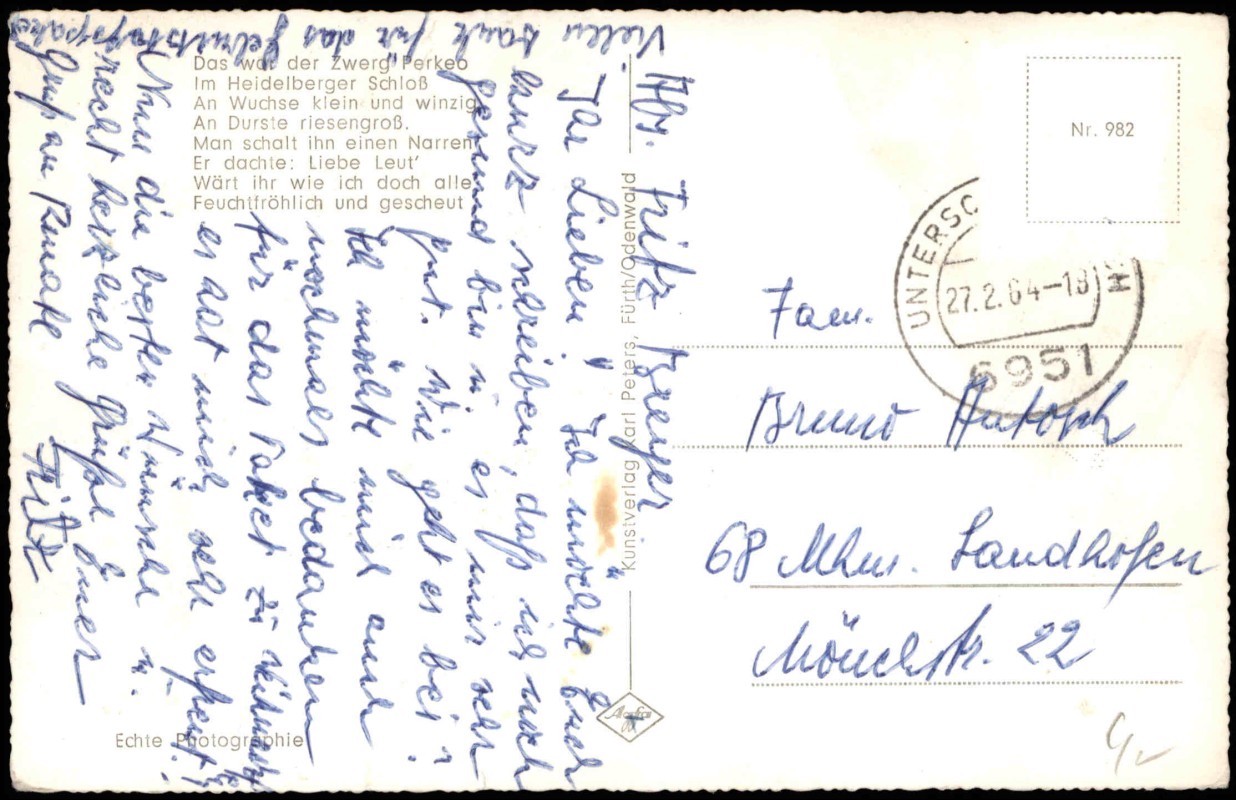 Das war der Zwerg Perkeo
Im Heidelberger Schloß
An Wuchse klein und winzig
An Durste riesengroß.
Man schalt ihn einen Narren
Er dachte: Liebe Leut'
Wärt ihr wie ich doch alle
Feuchtfröhlich und gescheut
Echte Photographie
Kunstverlag Karl Peters, Fürth/Odenwald
Agfa
Nr. 982
UNTERSC
27.2.64-18
6951
Abs. Fritz
Vielen Dank für das Geburtstagspaket
Ihr Lieben! Ich möchte Euch
kurz schreiben, daß ich noch
gesund bin u. es mir sehr
gut. Wie geht es bei
Ich möchte mich auch
nochmals bedanken
für das Paket zu
es hat mich sehr erfreut!
Nun die besten Wünsche u.
recht herzliche Grüße Euer
Fritz
Gruß an Renate
Fam.
Bruno
68 Mhm. Sandhofen
Mönchstr. 22